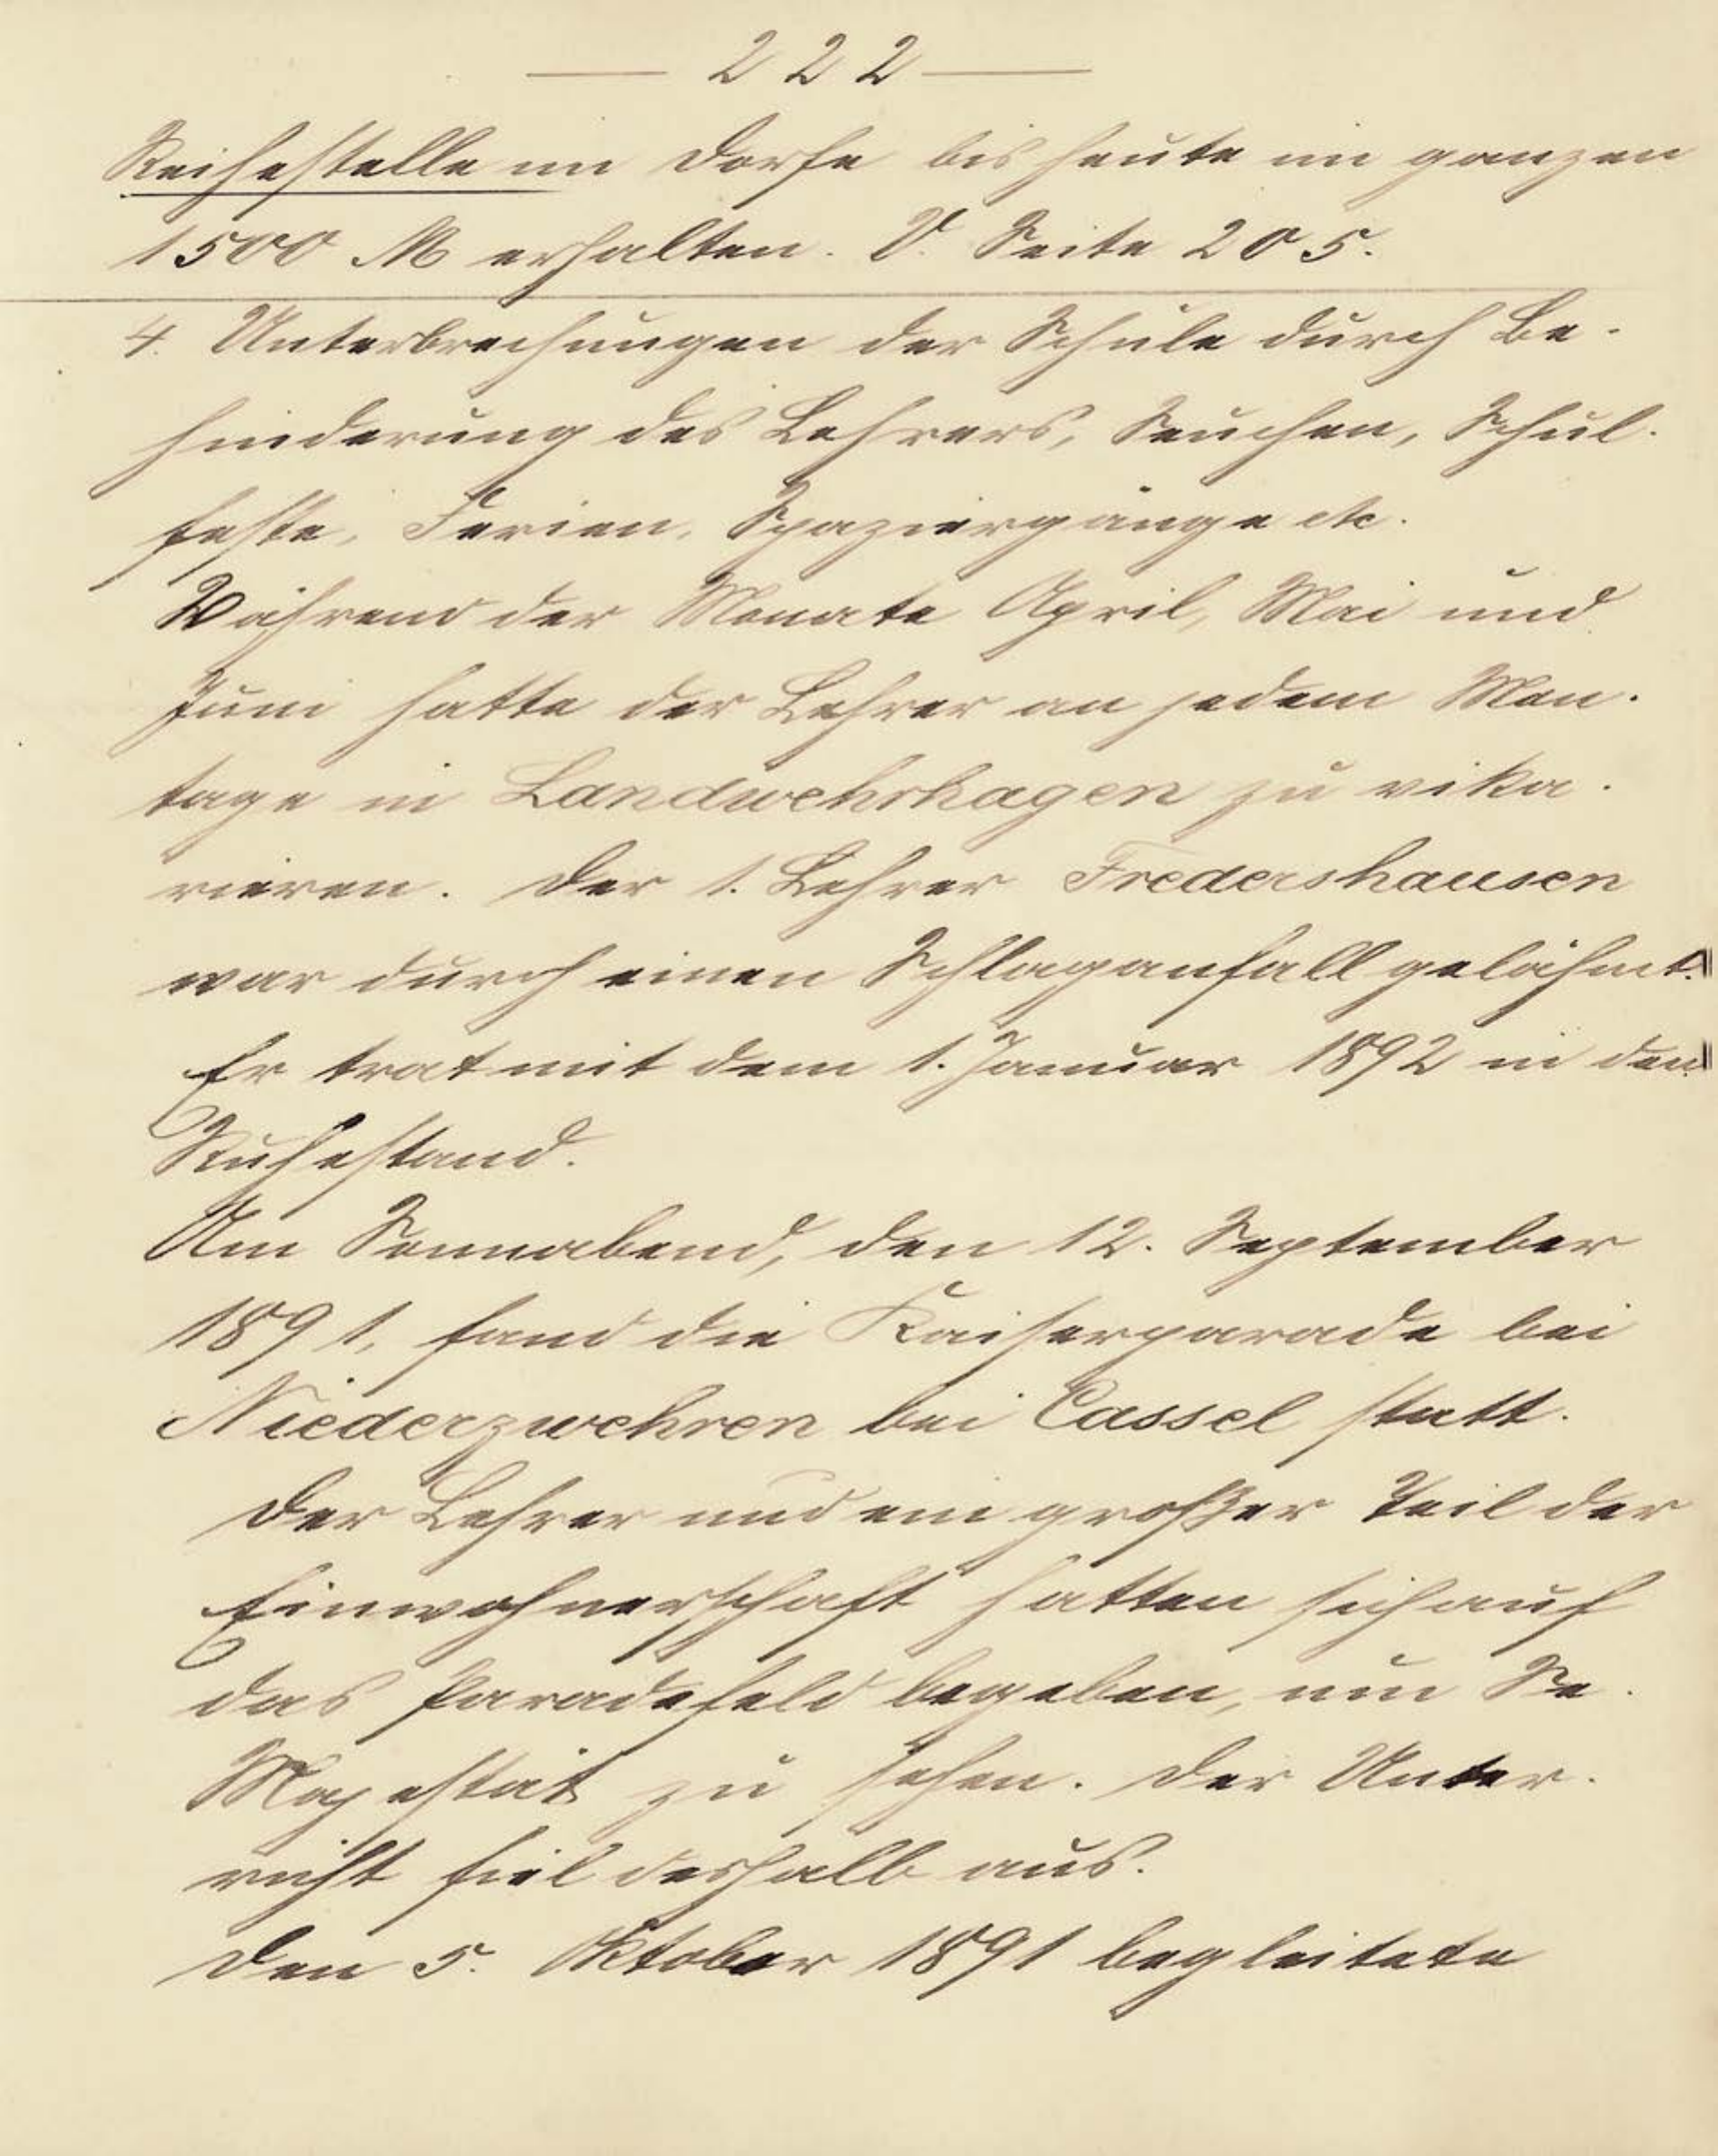 — 222 —
Reihestelle im Dorfe bis heute im ganzen
1500 M erhalten. V. Seite 205.
4. Unterbrechungen der Schule durch Be-
hinderung des Lehrers, Seuchen, Schul-
feste, Ferien, Spaziergänge etc.
Während der Monate April, Mai und
Juni hatte der Lehrer an jedem Mon-
tage in Landwehrhagen zu vika-
rieren. Der 1. Lehrer Fredershausen
war durch einen Schlaganfall gelähmt.
Er trat mit dem 1. Januar 1892 in den
Ruhestand.
Am Sonnabend, den 12. September
1891, fand die Kaiserparade bei
Niederzwehren bei Cassel statt.
Der Lehrer und ein großer Teil der
Einwohnerschaft hatten sich auf
das Paradefeld begeben, um Se.
Majestät zu sehen. Der Unter-
richt fiel deshalb aus.
Den 5. Oktober 1891 begleitete